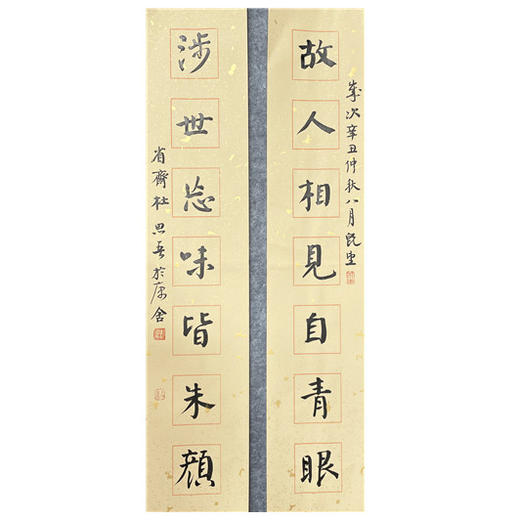 歲次辛丑仲秋八月既望
故人相見自青眼
涉世忘味皆朱顏
省齋杜思吾於舍